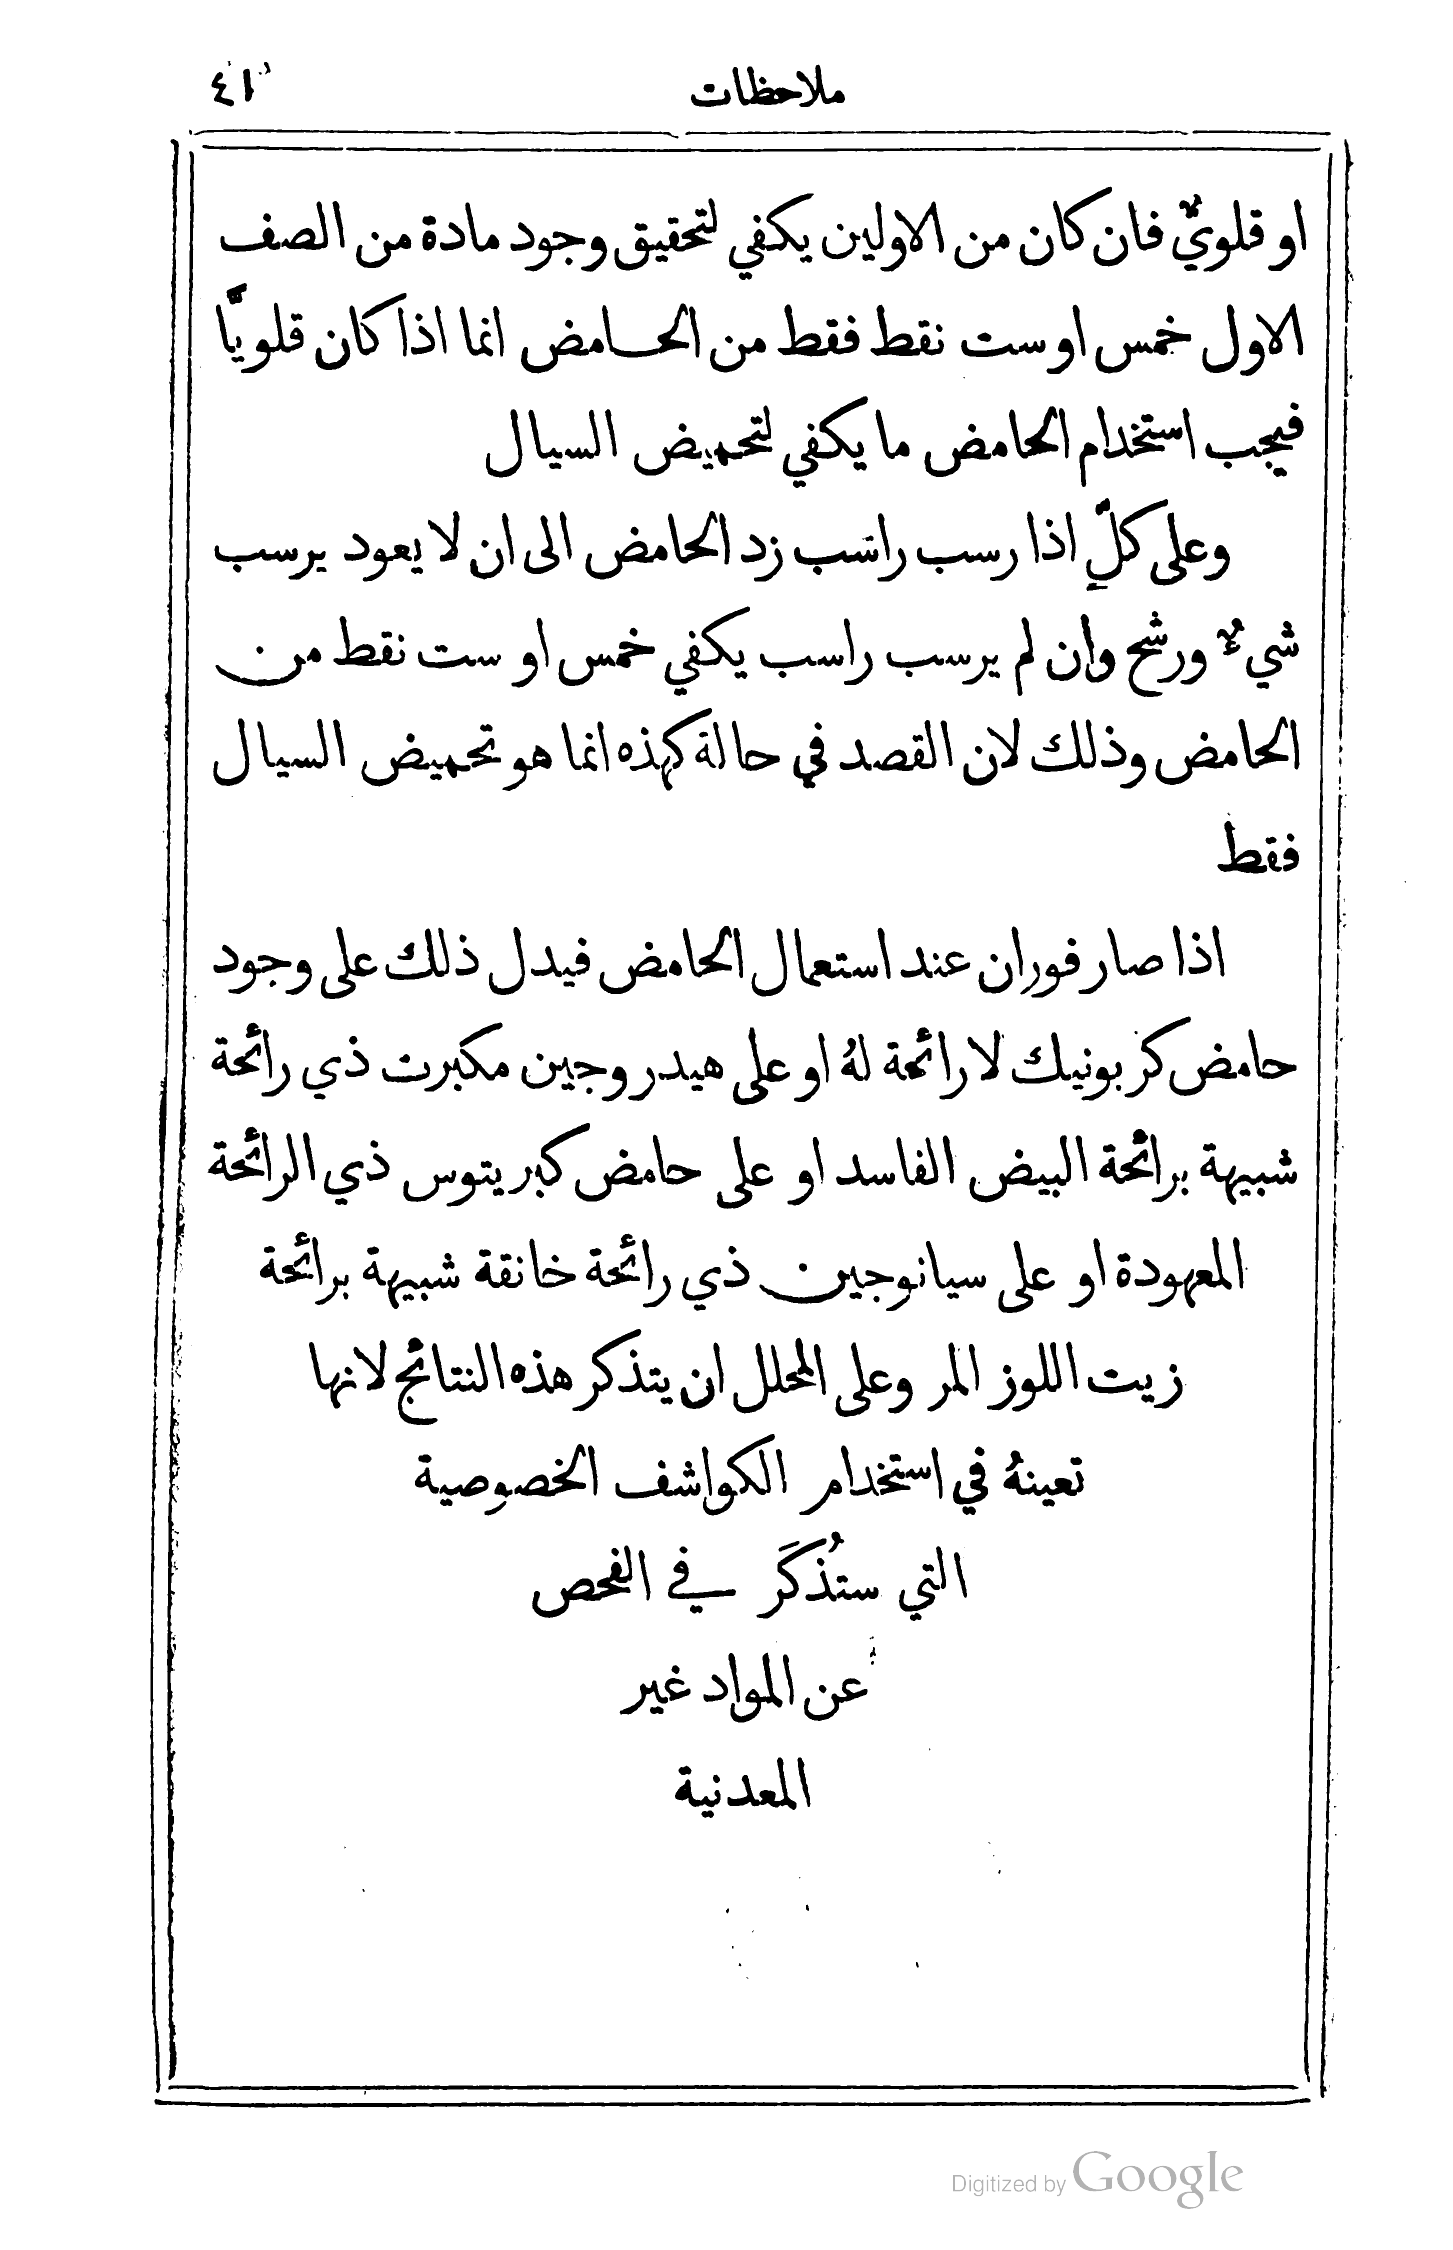 ملاحظات ٤١
او قلويٌّ فان كان من الاولين يكفي لتحقيق وجود مادة من الصف
الاول خمس او ست نقط فقط من الحامض انما اذا كان قلويًّا
فيجب استخدام الحامض ما يكفي لتحميض السيال
وعلى كلٍّ اذا رسب راسب زد الحامض الى ان لا يعود يرسب
شيءٌ ورشح وان لم يرسب راسب يكفي خمس او ست نقط من
الحامض وذلك لان القصد في حالة كهذه انما هو تحميض السيال
فقط
اذا صار فوران عند استعمال الحامض فيدل ذلك على وجود
حامض كربونيك لا رائحة لهُ او على هيدروجين مكبرت ذي رائحة
شبيهة برائحة البيض الفاسد او على حامض كبريتوس ذي الرائحة
المعهودة او على سيانوجين ذي رائحة خانقة شبيهة برائحة
زيت اللوز المر وعلى المحلل ان يتذكر هذه النتائج لانها
تعينهُ في استخدام الكواشف الخصوصية
التي ستُذكَر في الفحص
عن المواد غير
المعدنية
Digitized by Google